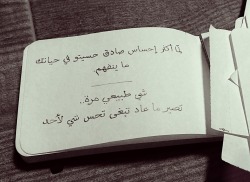 لما أكثر إحساس صادق حسيتو في حياتك
ما ينفهم.
شي طبيعي مرة..
تصير ما عاد تبغى تحس شي لأحد